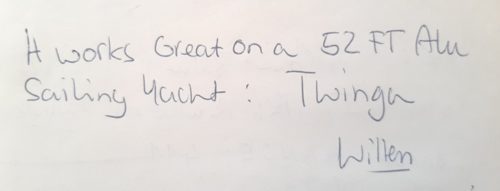 It works Great on a 52 FT Alu
Sailing Yacht : Twinga
Willem